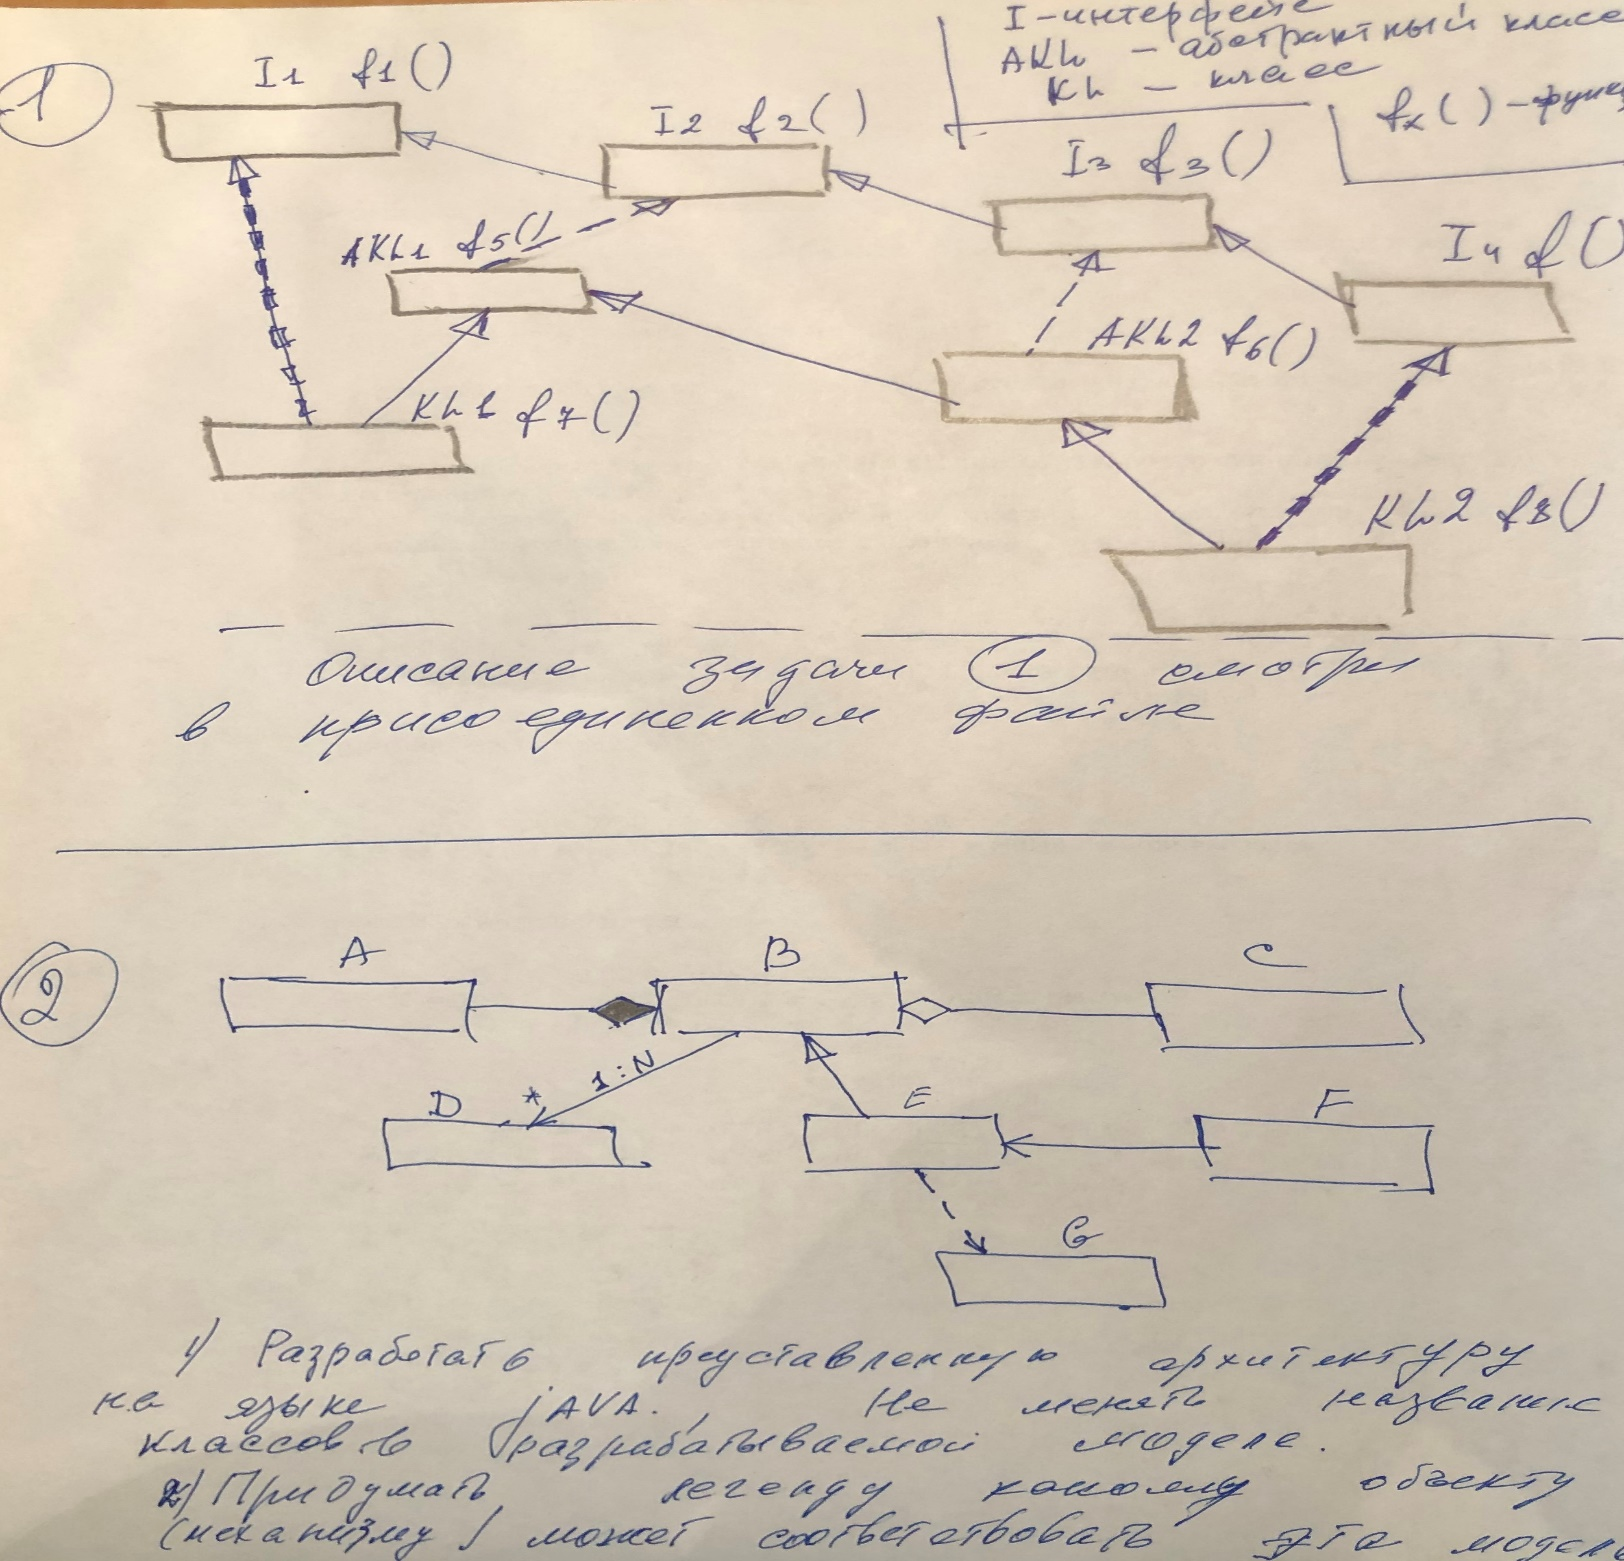 I - интерфейс
АКл - абстрактный класс
Кл - класс
fx() - функ
1
I1 f1()
I2 f2()
I3 f3()
I4 f()
АКл1 f5()
АКл2 f6()
Кл1 f7()
Кл2 f8()
Описание задачи 1 смотри
в присоединенном файле
2
A B C
1:N
D * E F
G
1) Разработать представленную архитектуру
на языке jAVA. Не менять названия
классов в разрабатываемой моделе.
2) Придумать легенду какому объекту
(механизму) может соответствовать эта модель